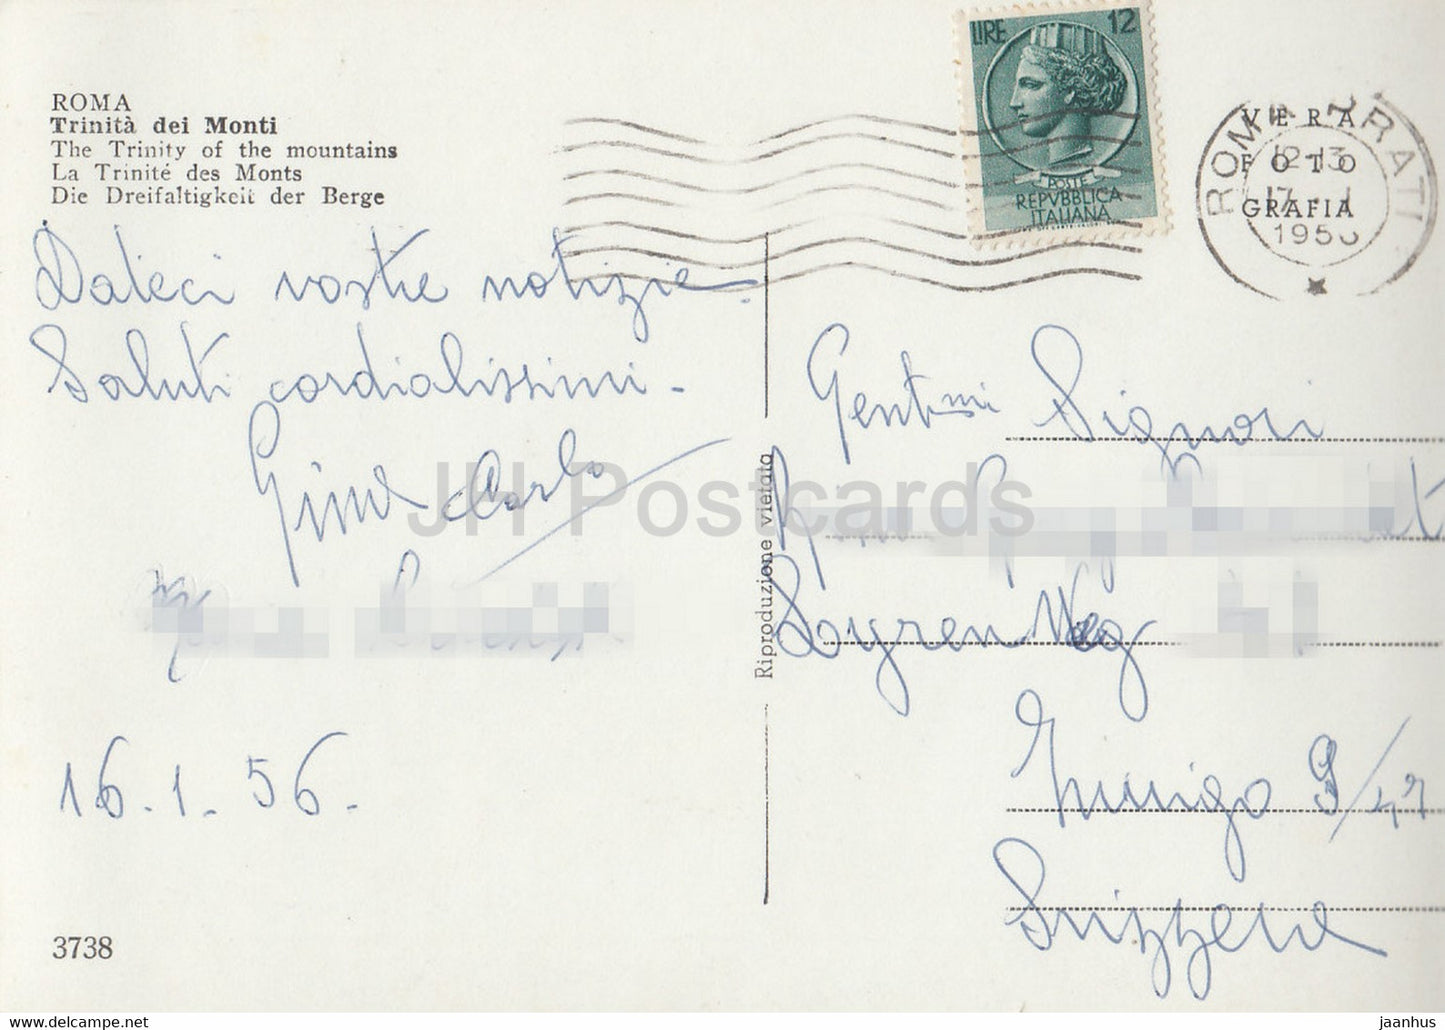 ROMA
Trinità dei Monti
The Trinity of the mountains
La Trinité des Monts
Die Dreifaltigkeit der Berge
LIRE 12
POSTE
REPVBBLICA
ITALIANA
VERA
FOTO
GRAFIA
ROMA PRATI
12-13
17 1
1956
Dateci vostre notizie.
Saluti cordialissimi -
Carlo
16.1.56.
3738
Riproduzione vietata
Gentmi Signori
Weg
Zurigo 9/47
Svizzera
JH Postcards
If you like, buy it on jaanhus